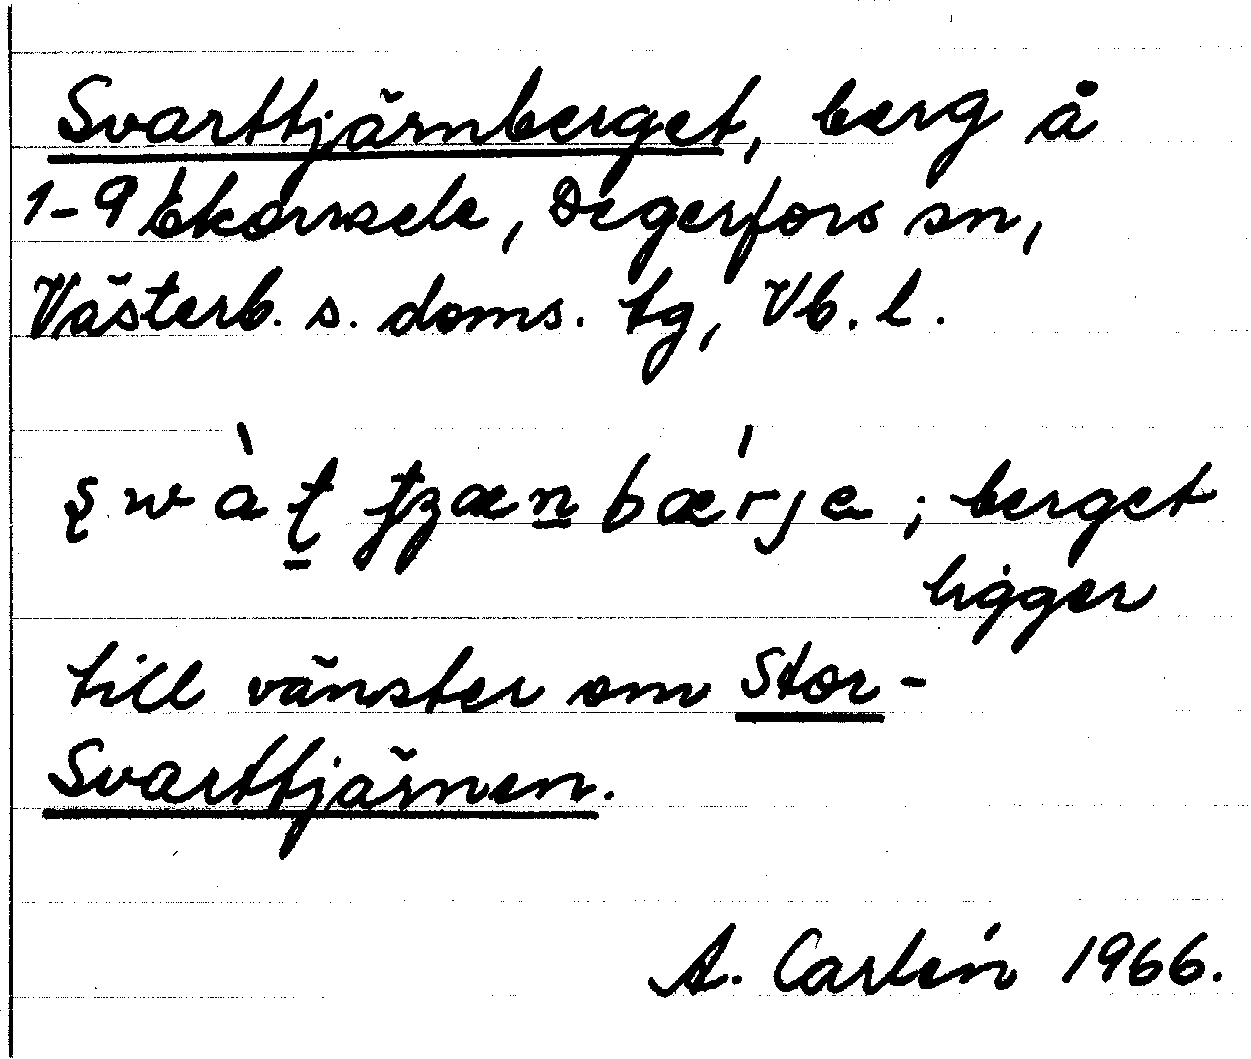 Svarttjärnberget, berg å
1-9 Ekorrsele, Degerfors sn,
Västerb. s. doms. tg, Vb. l.
ʂwàt̲ tʒæn̲bǽrja; berget
ligger
till vänster om Stor-
Svarttjärnen.
A. Carlén 1966.